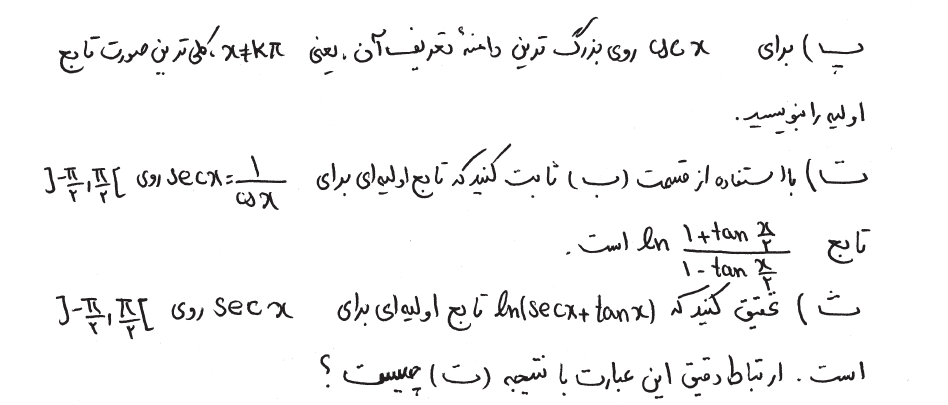 پ) برای csc x روی بزرگ ترین دامنهٔ تعریف آن، یعنی x≠kπ، کلی ترین صورت تابع
اولیه را بنویسید.
ت) با استفاده از قسمت (ب) ثابت کنید که تابع اولیه‌ای برای sec x = 1/cos x روی ]-π/۲, π/۲[
تابع ln (1+tan x/۲)/(1-tan x/۲) است.
ث) تحقیق کنید که ln(sec x + tan x) تابع اولیه‌ای برای sec x روی ]-π/۲, π/۲[
است. ارتباط دقیق این عبارت با نتیجه (ت) چیست؟